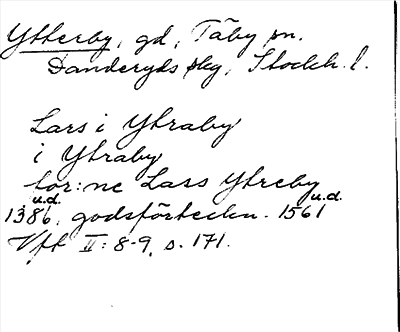 Ytterby, gd, Täby sn.
Danderyds skg, Stockh. l.
Lars i Ytraby
i Ytraby
bor: ne Lars Ytreby
1386 u.d. godsförteckn. 1561 u.d.
Vft II: 8-9, s. 171.